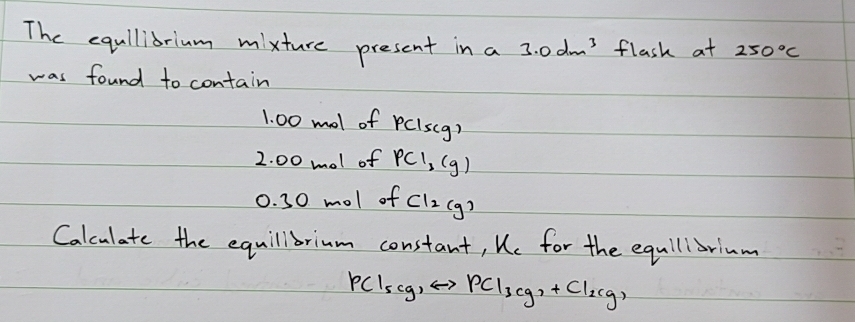 The equilibrium mixture present in a 3.0 dm³ flask at 250°C
was found to contain
1.00 mol of PCl5(g)
2.00 mol of PCl3(g)
0.30 mol of Cl2(g)
Calculate the equilibrium constant, Kc for the equilibrium
PCl5(g) ↔ PCl3(g) + Cl2(g)